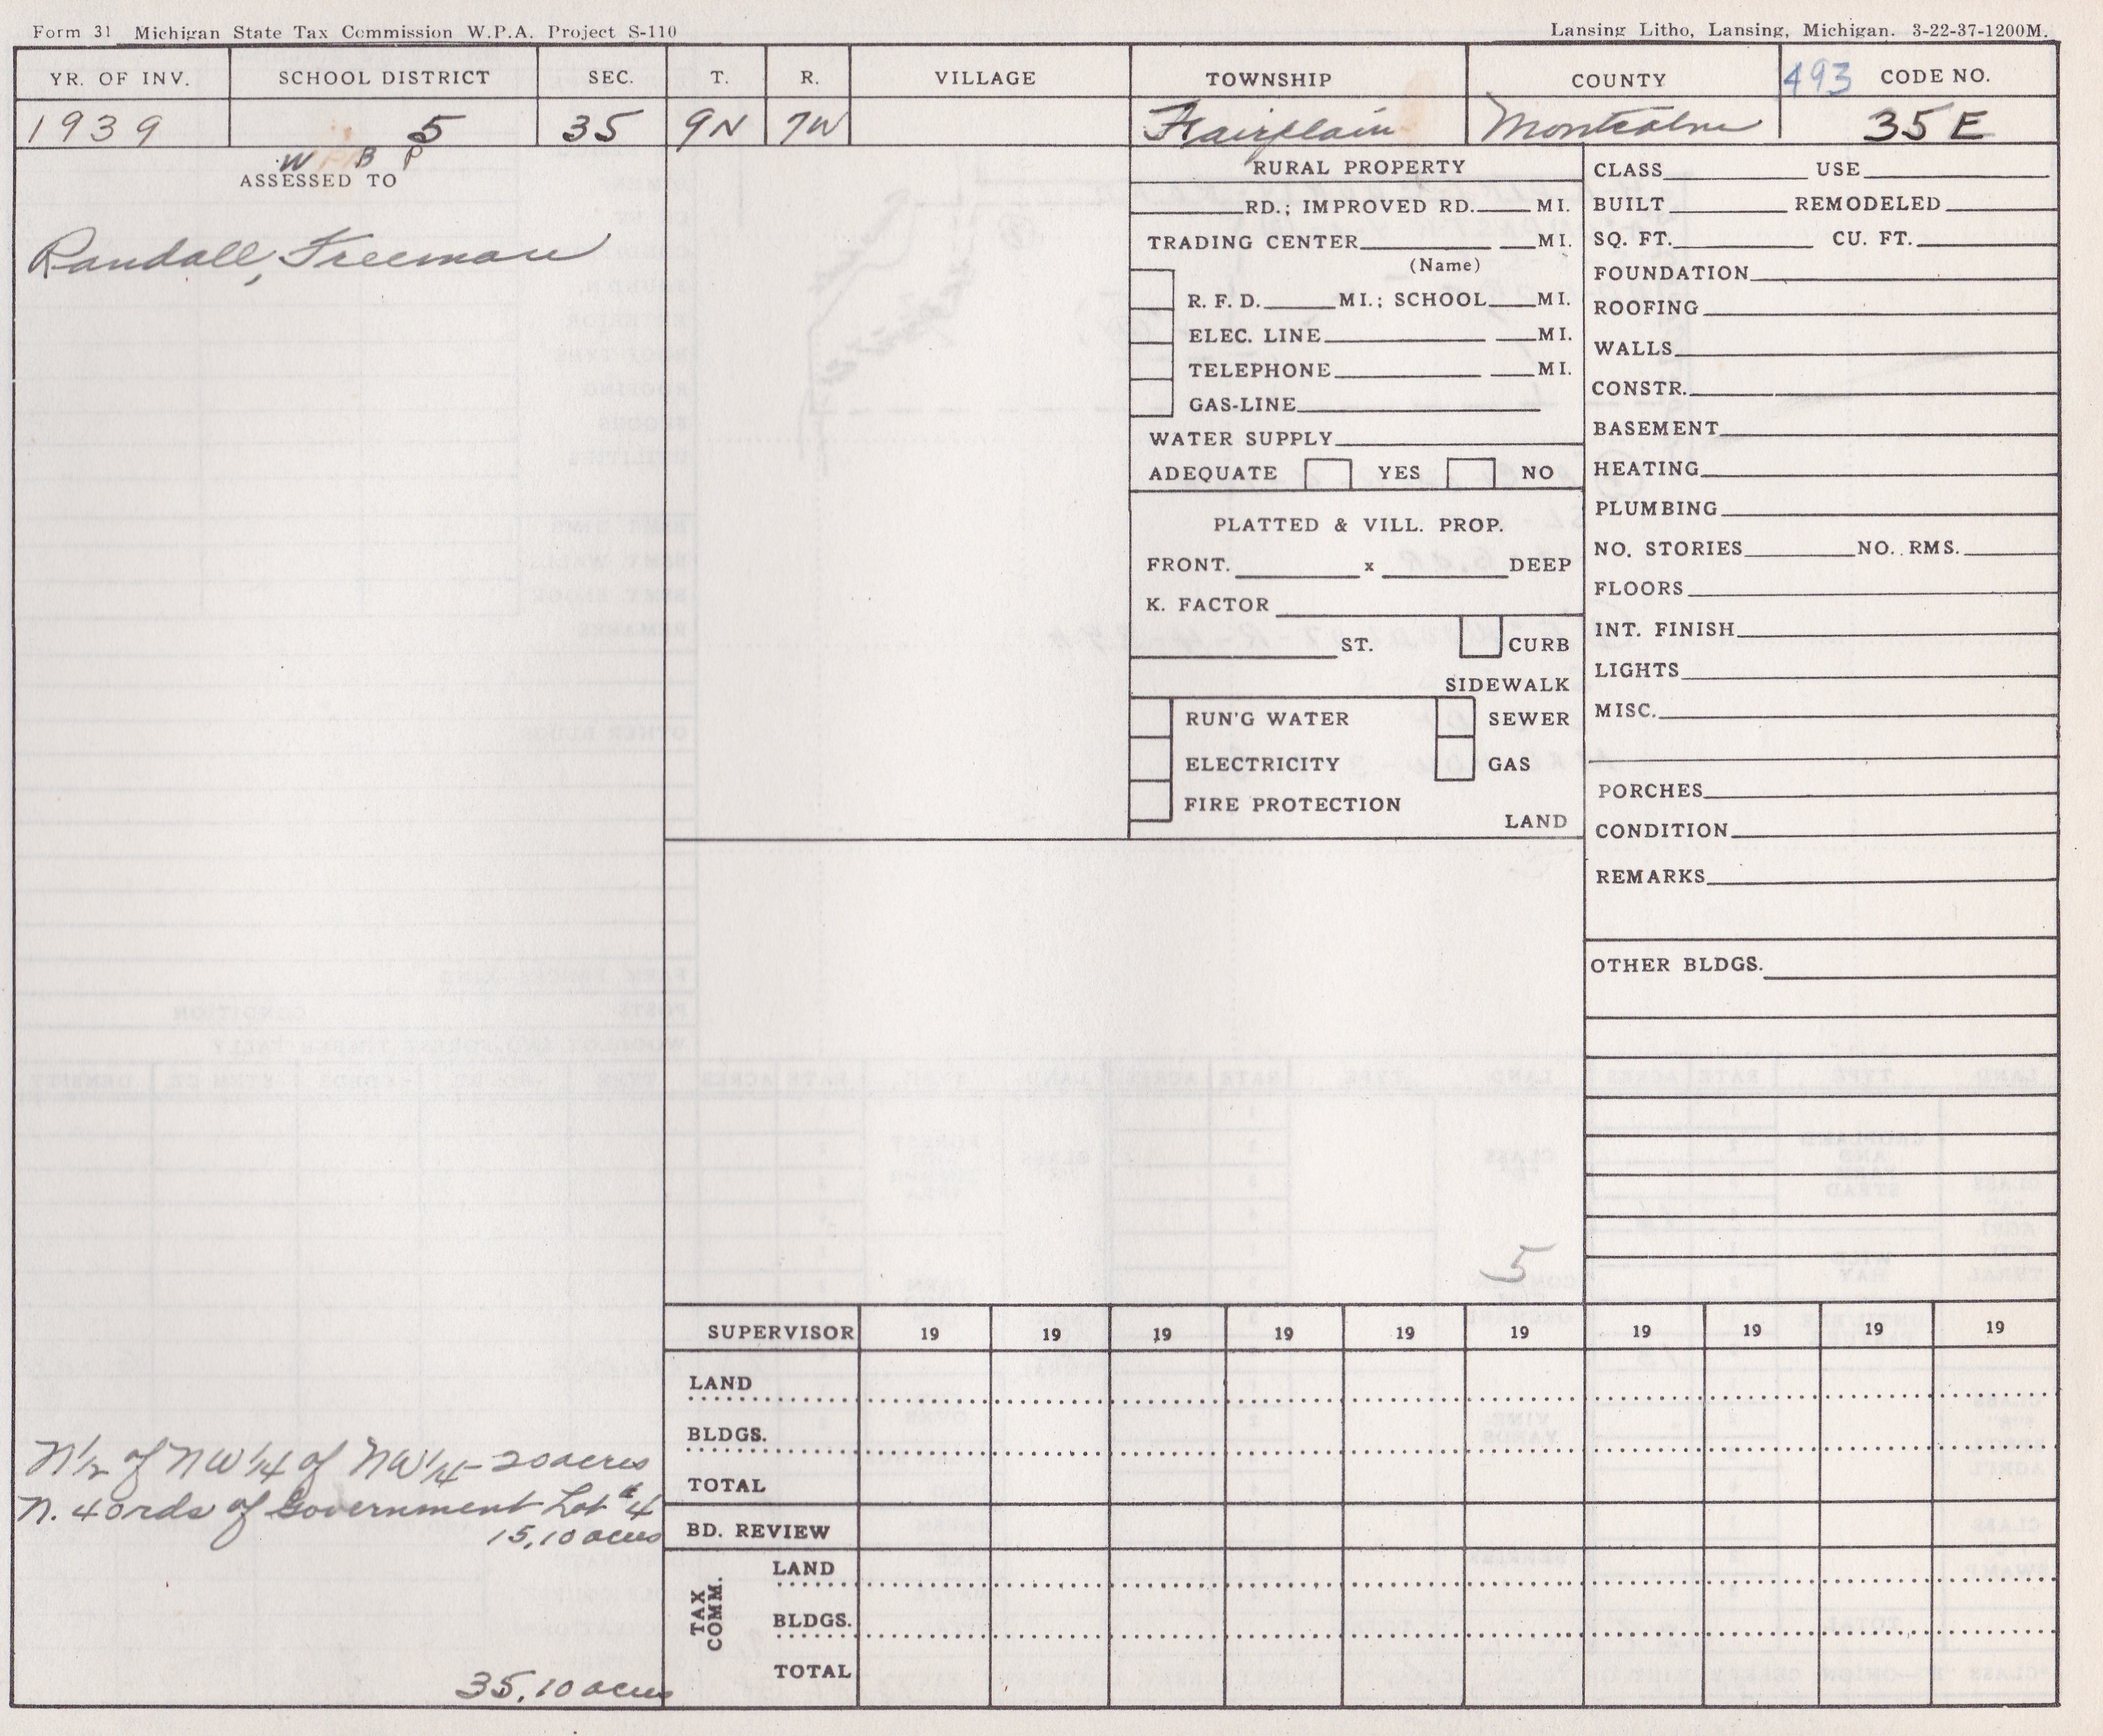 Form 31 Michigan State Tax Commission W.P.A. Project S-110 Lansing Litho, Lansing, Michigan. 3-22-37-1200M.
YR. OF INV. SCHOOL DISTRICT SEC. T. R. VILLAGE TOWNSHIP COUNTY 493 CODE NO.
1939 5 35 9N 7W Fairplain Montcalm 35 E
W B P
ASSESSED TO
Randall, Freeman
N 1/2 of NW 1/4 of NW 1/4 - 20 acres
N. 40 rds of Government Lot #4
15.10 acres
35.10 acres
RURAL PROPERTY
RD.; IMPROVED RD. MI.
TRADING CENTER MI.
(Name)
R. F. D. MI.; SCHOOL MI.
ELEC. LINE MI.
TELEPHONE MI.
GAS-LINE
WATER SUPPLY
ADEQUATE YES NO
PLATTED & VILL. PROP.
FRONT. x DEEP
K. FACTOR
ST. CURB
SIDEWALK
RUN'G WATER SEWER
ELECTRICITY GAS
FIRE PROTECTION
LAND
5
CLASS USE
BUILT REMODELED
SQ. FT. CU. FT.
FOUNDATION
ROOFING
WALLS
CONSTR.
BASEMENT
HEATING
PLUMBING
NO. STORIES NO. RMS.
FLOORS
INT. FINISH
LIGHTS
MISC.
PORCHES
CONDITION
REMARKS
OTHER BLDGS.
SUPERVISOR 19 19 19 19 19 19 19 19 19 19
LAND
BLDGS.
TOTAL
BD. REVIEW
TAX COMM.
LAND
BLDGS.
TOTAL